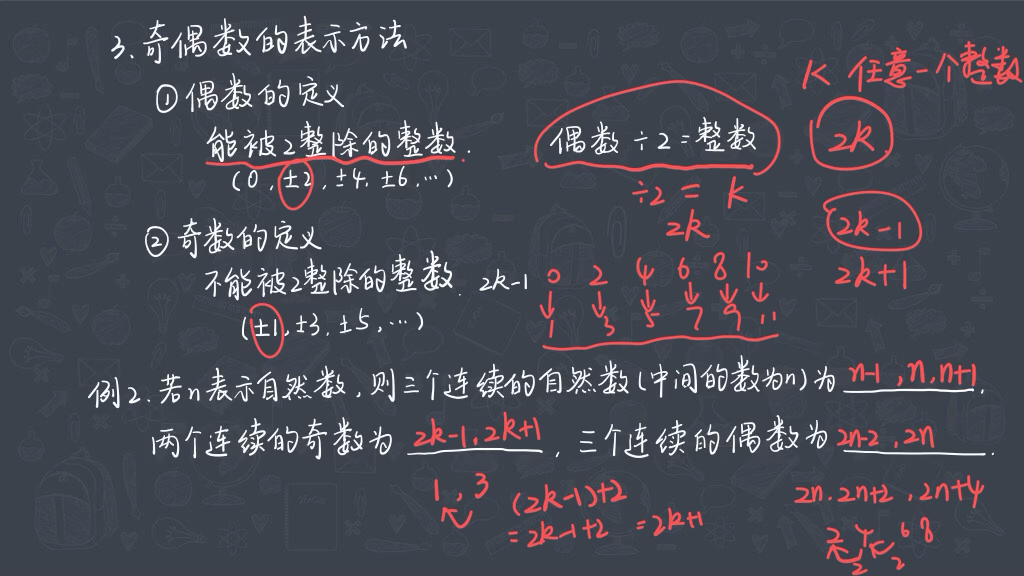 3.奇偶数的表示方法
K 任意一个整数
①偶数的定义
能被2整除的整数.
偶数÷2=整数
2K
(0,±2,±4,±6,…)
÷2 = K
2k
②奇数的定义
2k-1
不能被2整除的整数. 2k-1
0 2 4 6 8 10
2k+1
(±1,±3,±5,…)
1 3 5 7 9 11
例2.若n表示自然数,则三个连续的自然数(中间的数为n)为 n-1,n,n+1.
两个连续的奇数为 2k-1,2k+1,三个连续的偶数为 2n-2,2n.
1,3
(2k-1)+2
2n.2n+2,2n+4
=2k-1+2 =2k+1
2 4 6 8
2 2